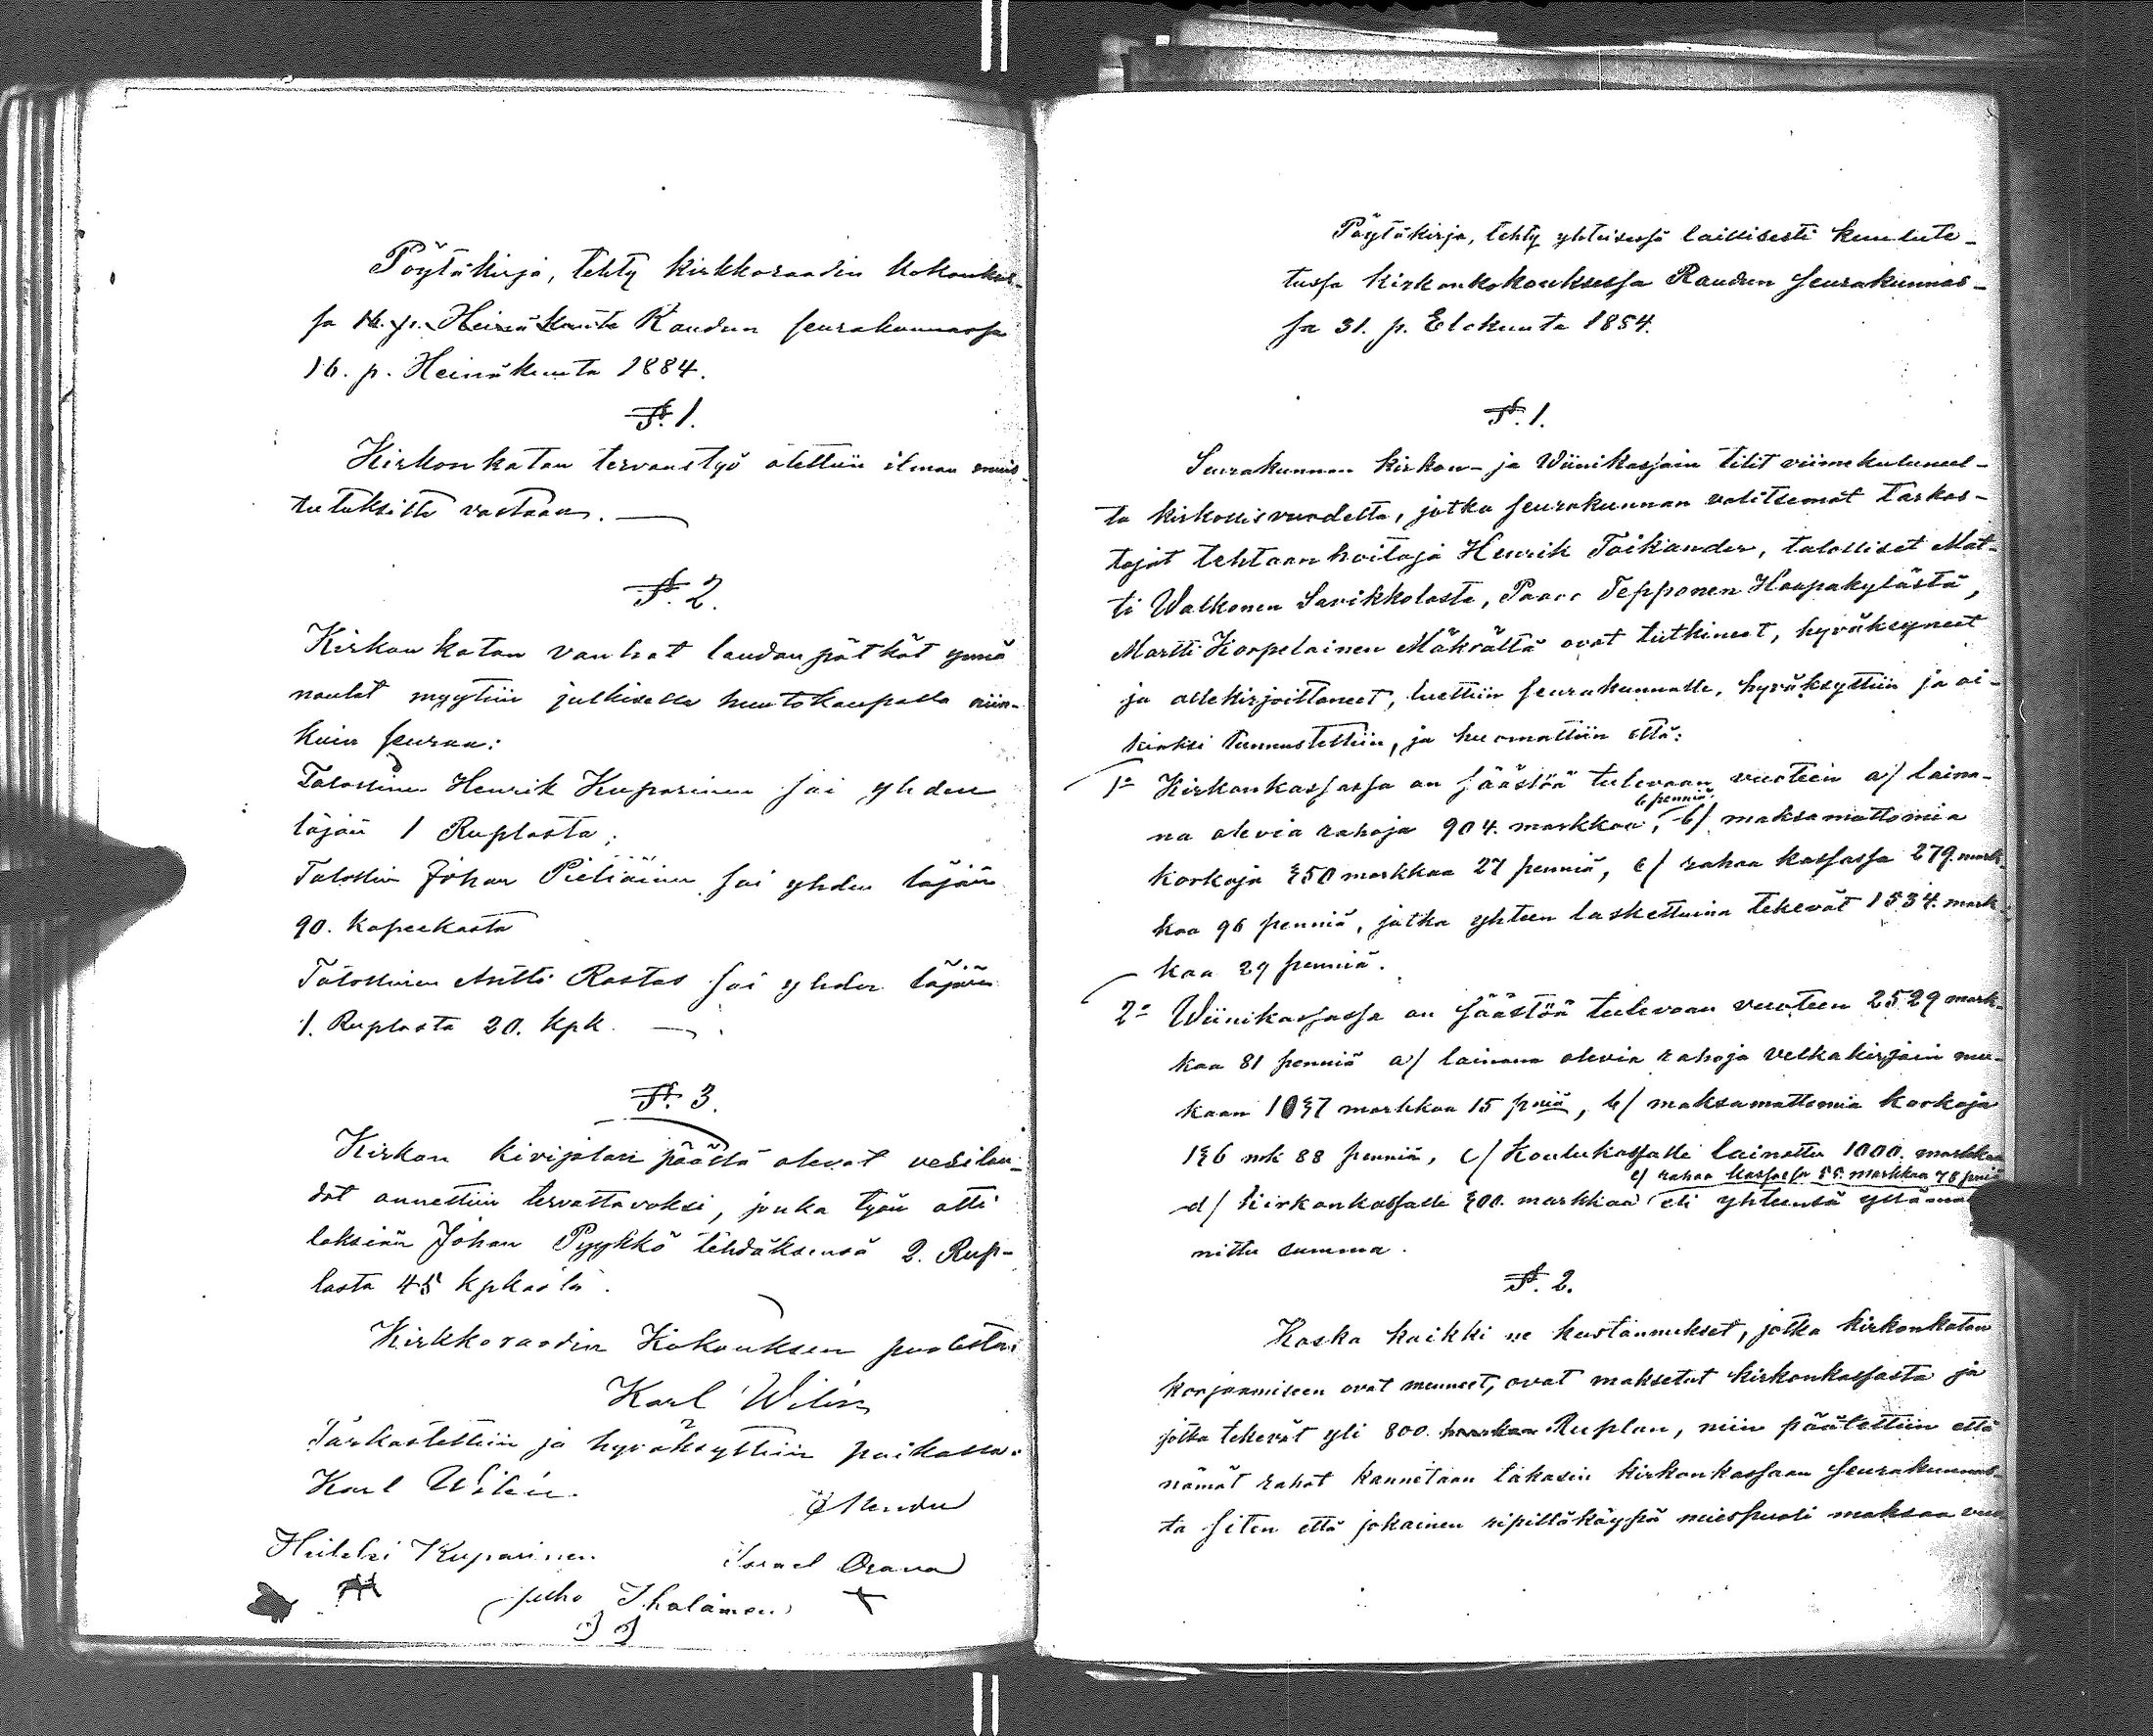 Pöytäkirja, tehty kirkkoraadin kokoukses-
sa 16. p. Heinäkuuta Raudun seurakunnassa
16. p. Heinäkuuta 1884.
§. 1.
Kirkon katon tervaustyö otettiin ilman muis-
tutuksitta vastaan. —
§. 2.
Kirkon katon vanhat laudan pätkät ynnä
naulat myytiin julkisella huutokaupalla niin-
kuin seuraa:
Talollinen Henrik Kuparinen sai yhden
läjän 1 Ruplasta;
Talollin Johan Pieliäinen sai yhden läjän
90. kopeekasta
Talollinen Antti Rastas sai yhden läjän
1. Ruplasta 20. kpk. —
§. 3.
Kirkon kivijalan päällä olevat vesilau-
dat annettiin tervattavaksi, jonka työn otti
laksiaan Johan Pyykkö tehdäksensä 2. Rup-
lasta 45 kpkasta.
Kirkkoraadin Kokouksen puolesta:
Karl Wilén
Tarkastettiin ja hyväksyttiin paikassa:
Karl Wilén.
Heikki Kuparinen
Israel Orava
Juho Ihalainen
Pöytäkirja, tehty yhteisessä laillisesti kuulute-
tussa kirkonkokouksessa Raudun seurakunnas-
sa 31. p. Elokuuta 1884.
§. 1.
Seurakunnan kirkon- ja Wiinikassain tilit viimekuluneel-
ta kirkollisvuodelta, jotka seurakunnan valitsemat tarkas-
tajat tehtaanhoitaja Henrik Toikander, talolliset Mat-
ti Walkonen Savikkolasta, Paavo Tepponen Haapakylästä,
Martti Korpelainen Mäkrältä ovat tutkineet, hyväksyneet
ja allekirjoittaneet, luettiin seurakunnalle, hyväksyttiin ja oi-
kiaksi tunnustettiin, ja huomattiin että:
1:o Kirkonkassassa on säästöä tulevaan vuoteen a/ laina-
na olevia rahoja 904. markkaa 6 penniä, b/ maksamattomia
korkoja 350 markkaa 27 penniä, c/ rahaa kassassa 279. mark-
kaa 96 penniä, jotka yhteen laskettuina tekevät 1534. mark-
kaa 29 penniä.
2:o Wiinikassassa on säästöä tulevaan vuoteen 2529 mark-
kaa 81 penniä a/ lainana olevia rahoja velkakirjain mu-
kaan 1037 markkaa 15 pniä, b/ maksamattomia korkoja
136 mk 88 penniä, c/ Koulukassalle lainattu 1000. markkaa
d/ kirkonkassalle 300. markkaa e/ rahaa kassassa 55. markkaa 78 pniä eli yhteensä yllä mai-
nittu summa.
§. 2.
Koska kaikki ne kustannukset, jotka kirkonkaton
korjaamiseen ovat menneet, ovat maksetut kirkonkassasta ja
jotka tekevät yli 800. Ruplan, niin päätettiin että
nämät rahat kannetaan takasin kirkonkassaan seurakunnas-
ta siten että jokainen ripillä käypä miespuoli maksaa vuo